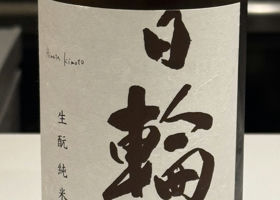 Hiwata Kimoto
日輪
生酛純米